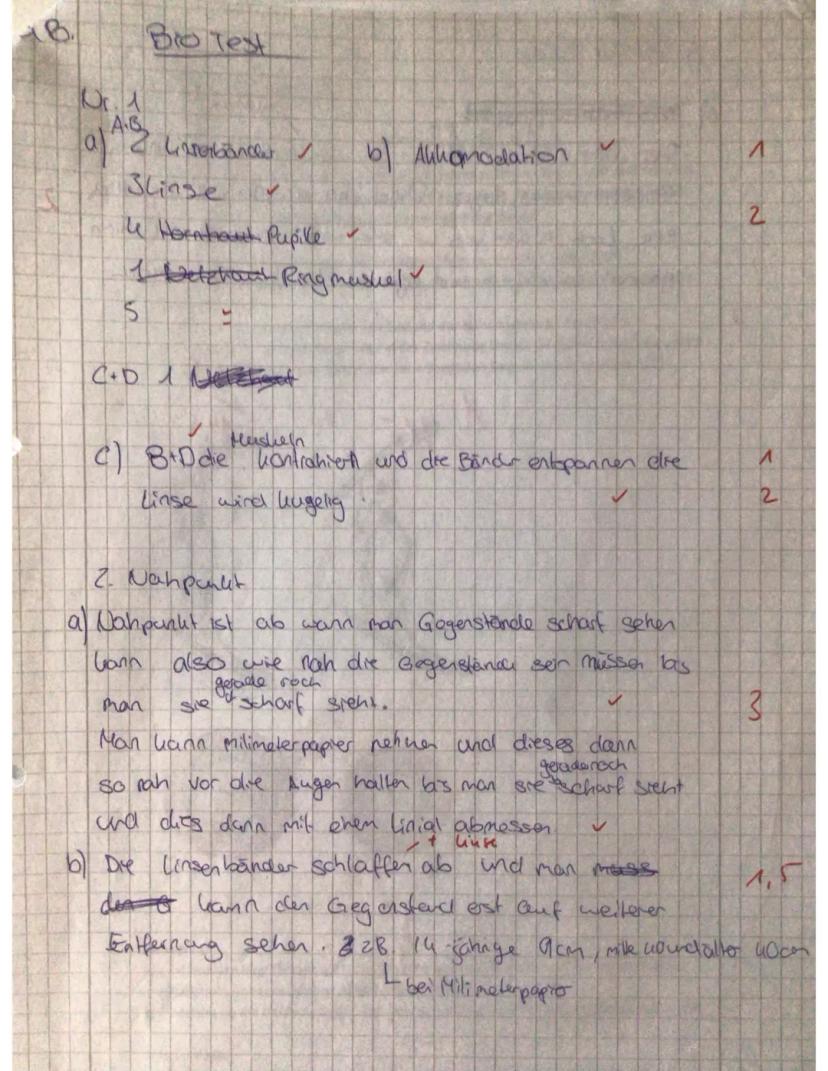 1B. Bio Test
Nr. 1
A+B
a) 2 Linsenbänder ✓ b) Akkomodation ✓ 1
3 Linse ✓
2
4 Hornhaut Pupille ✓
1 Netzhaut Ringmuskel ✓
5
C+D 1 Netzhaut
Muskeln
c) B+D die kontrahiert und die Bänder entspannen die 1
Linse wird kugelig. ✓ 2
2. Nahpunkt
a) Nahpunkt ist ab wann man Gegenstände scharf sehen
kann also wie nah die Gegenstände sein müssen bis
gerade noch
man sie scharf sieht. ✓ 3
Man kann milimeterpapier nehmen und dieses dann
gerade noch
so nah vor die Augen halten bis man sie scharf sieht
und dies dann mit einem Linial abmessen ✓
+ Linse
b) Die Linsenbänder schlaffen ab und man muss 1,5
kann den Gegenstand erst auf weiterer
Entfernung sehen. zB. 14-jährige 9cm, mite 40 und älter 40cm
bei Milimeterpapier